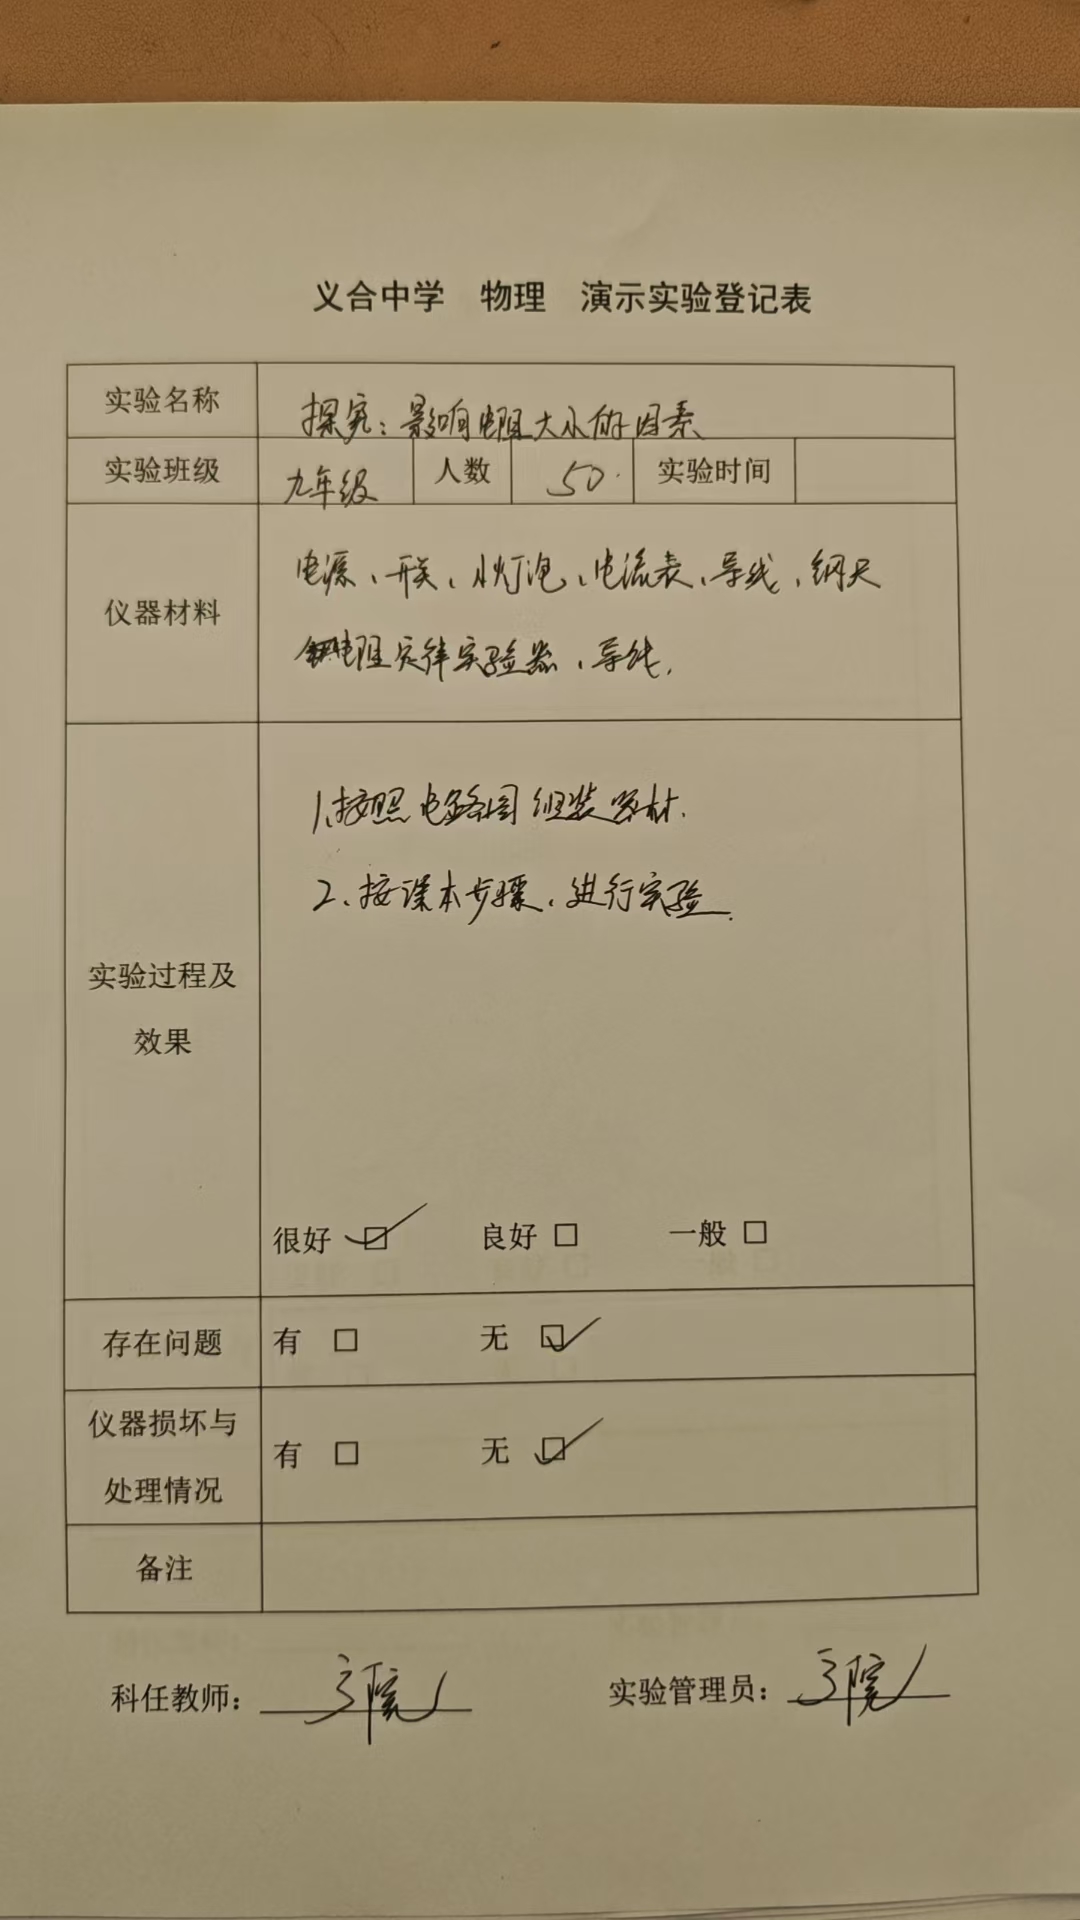 义合中学 物理 演示实验登记表
实验名称 探究：影响电阻大小的因素
实验班级 九年级 人数 50 实验时间
仪器材料
电源、开关、小灯泡、电流表、导线、钢尺
电阻定律实验器、导线.
1.按照电路图组装器材.
2、按课本步骤、进行实验.
实验过程及
效果
很好 ☑ 良好 □ 一般 □
存在问题 有 □ 无 ☑
仪器损坏与
处理情况
有 □ 无 ☑
备注
科任教师： 实验管理员：